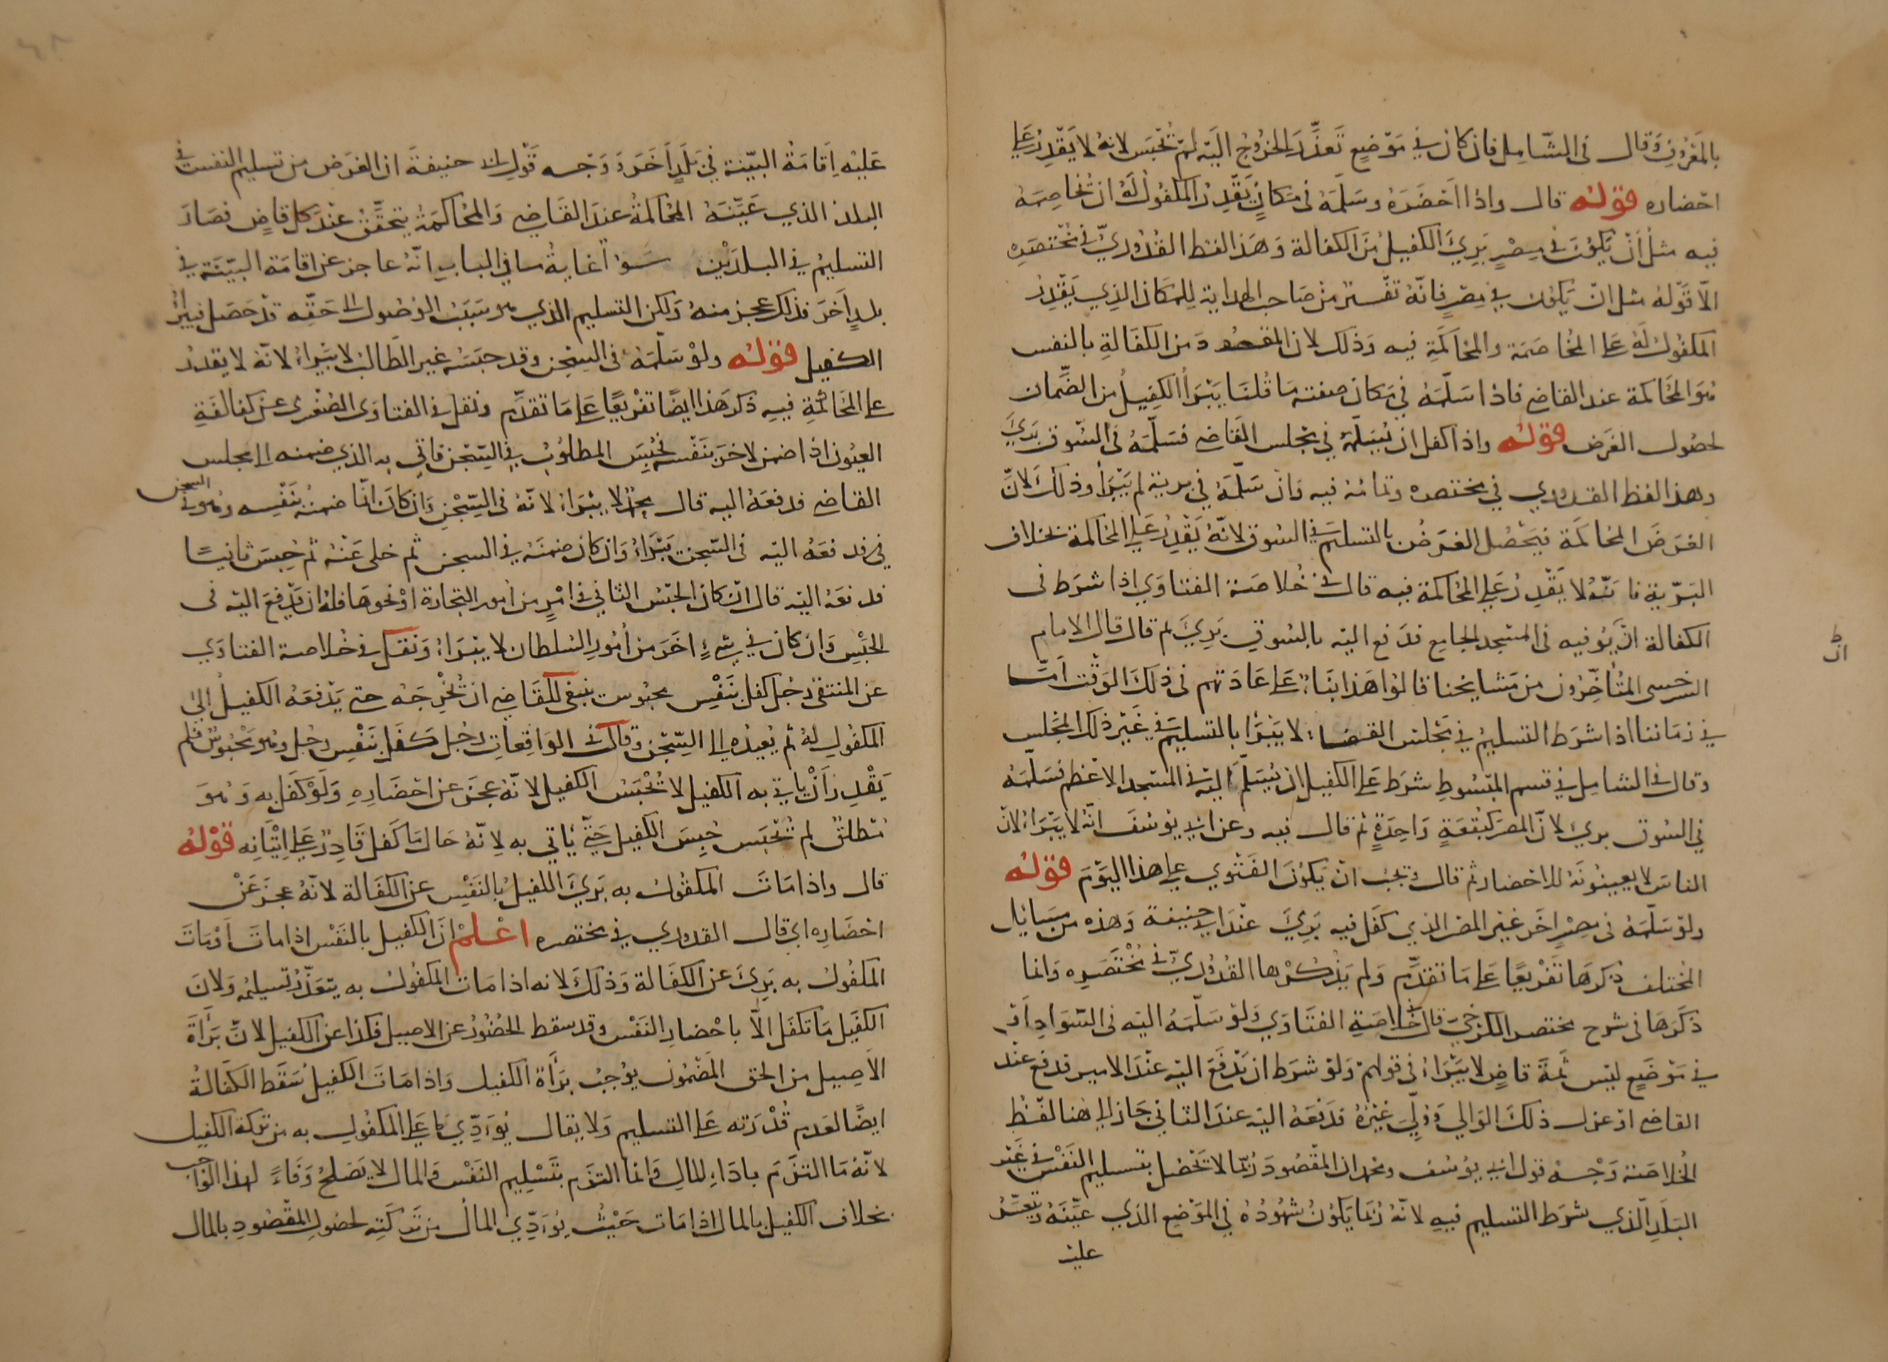 بالمعروف وقال في الشامل فان كان في موضع تعذر الخروج اليه لم يحبس لانه لا يقدر على
احضاره قوله قال واذا احضره وسلمه في مكان يقدر المكفول له ان يخاصمه
فيه مثل ان يكون في مصر بري الكفيل من الكفالة وهذا لفظ القدوري في مختصره
الا قوله مثل ان يكون في مصر فانه تفسير من صاحب الهداية للمكان الذي يقدر
المكفول له على المخاصمة والمحاكمة فيه وذلك لان المقصود من الكفالة بالنفس
هو المحاكمة عند القاضي فاذا سلمه في مكان صفته ما قلنا يبرأ الكفيل من الضمان
لحصول الغرض قوله واذا كفل ان يسلمه في مجلس القاضي فسلمه في السوق بري
وهذا لفظ القدوري في مختصره وتمامه فيه وان سلمه في برية لم يبرأ وذلك لان
الغرض المحاكمة فيحصل الغرض بالتسليم في السوق لانه يقدر على المحاكمة بخلاف
البرية فانه لا يقدر على المحاكمة فيه قال في خلاصة الفتاوي اذا شرط في
الكفالة ان يوفيه في المسجد الجامع فدفع اليه بالسوق بري ثم قال قال الامام
السرخسي المتأخرون من مشايخنا قالوا هذا بناء على عادتهم في ذلك الوقت اما
في زماننا اذا شرط التسليم في مجلس القضاء لا يبرأ بالتسليم في غير ذلك المجلس
وقال في الشامل في قسم المبسوط شرط على الكفيل ان يسلم اليه في المسجد الاعظم فسلمه
في السوق بري لان المصر كبقعة واحدة ثم قال فيه وعن ابي يوسف انه لا يبراء لان
الناس لا يعينونه للاحضار ثم قال ويجب ان يكون الفتوي على هذا اليوم قوله
ولو سلمه في مصر اخر غير المصر الذي كفل فيه بري عند ابي حنيفة وهذه من مسايل
المختلف ذكرها تفريعا على ما تقدم ولم يذكرها القدوري في مختصره وانما
ذكرها في شرح مختصر الكرخي قال في خلاصة الفتاوي ولو سلمه اليه في السواد او
في موضع ليس ثمة قاض لا يبراء في قولهم ولو شرط ان يدفع اليه عند الامير فدفع عند
القاضي او عزل ذلك الوالي وولي غيره فدفعه اليه عند الثاني جاز الي هنا لفظ
الخلاصة وجه قول ابي يوسف ومحمد ان المقصود ربما لا تحصل بتسليم النفس في غير
البلد الذي شرط التسليم فيه لانه ربما يكون شهوده في الموضع الذي عينه ويتعسر
عليه
عليه اقامة البينة في بلد اخر ووجه قول ابي حنيفة ان الغرض من تسليم النفس في
البلد الذي عينه المحاكمة عند القاضي والمحاكمة يتحقق عند كل قاض فصار
التسليم في البلدين سواء غاية ما في الباب انه عاجز عن اقامة البينة في
بلد اخر فذلك عجز منه ولكن التسليم الذي هو سبب الوصول الى حقه قد حصل فيبرأ
الكفيل قوله ولو سلمه في السجن وقد حبسه غير الطالب لا يبراء لانه لا يقدر
على المحاكمة فيه ذكر هذا ايضا تفريعا على ما تقدم ونقل في الفتاوى الصغرى عن كفالة
العيون اذا ضمن لاخر بنفسه فحبس المطلوب في السجن فاتى به الذي ضمنه الى مجلس
القاضي فدفعه اليه قال محمد لا يبراء لانه في السجن وان كان انما ضمنه بنفسه وهو في السجن
فدفعه اليه في السجن يبراء وان كان ضمنه في السجن ثم خلى عنه ثم حبس ثانيا
فدفعه اليه قال ان كان الحبس الثاني في امر من امور التجارة او نحوها فله ان يدفع اليه في
الحبس وان كان في شيء اخر من امور السلطان لا يبراء ونقل في خلاصة الفتاوي
عن المنتقى رجل كفل بنفس محبوس ينبغي للقاضي ان يخرجه حتى يدفعه الكفيل الى
المكفول له ثم يعيده الى السجن وقال في الواقعات رجل كفل بنفس رجل وهو محبوس فلم
يقدر ان ياتي به الكفيل لا يحبس الكفيل لانه عجز عن احضاره ولو كفل به وهو
مطلق لم يحبس حبس الكفيل حتى ياتي به لانه حال ما كفل قادر على اتيانه قوله
قال واذا مات المكفول به بري الكفيل بالنفس عن الكفالة لانه عجز عن
احضاره اي قال القدوري في مختصره اعلم ان الكفيل بالنفس اذا مات او مات
المكفول به بري عن الكفالة وذلك لانه اذا مات المكفول به يتعذر تسليمه ولان
الكفيل ما تكفل الا باحضار النفس وقد سقط الحضور عن الاصيل فكذا عن الكفيل لان براة
الاصيل من الحق المضمون يوجب براة الكفيل واذا مات الكفيل سقط الكفالة
ايضا لعدم قدرته على التسليم ولا يقال يؤدي ما على المكفول به من تركة الكفيل
لانه ما التزم باداء المال وانما التزم بتسليم النفس والمال لا يصلح وفاء لهذا الواجب
بخلاف الكفيل بالمال اذا مات حيث يؤدي المال من تركته لحصول المقصود بالمال